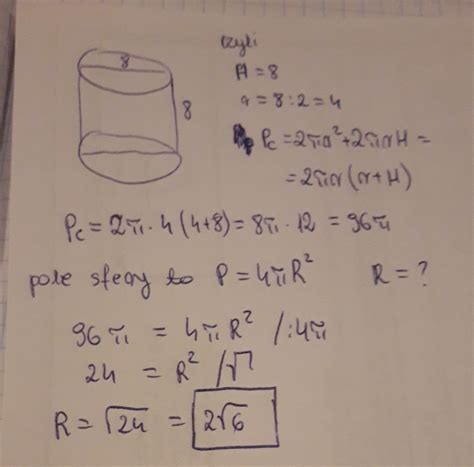 czyli
8
H = 8
8
r = 8 : 2 = 4
Pc = 2πr² + 2πrH =
= 2πr (r + H)
Pc = 2π · 4 (4+8) = 8π · 12 = 96π
pole sfery to P = 4πR² R = ?
96π = 4πR² /:4π
24 = R² /√
R = √24 = 2√6